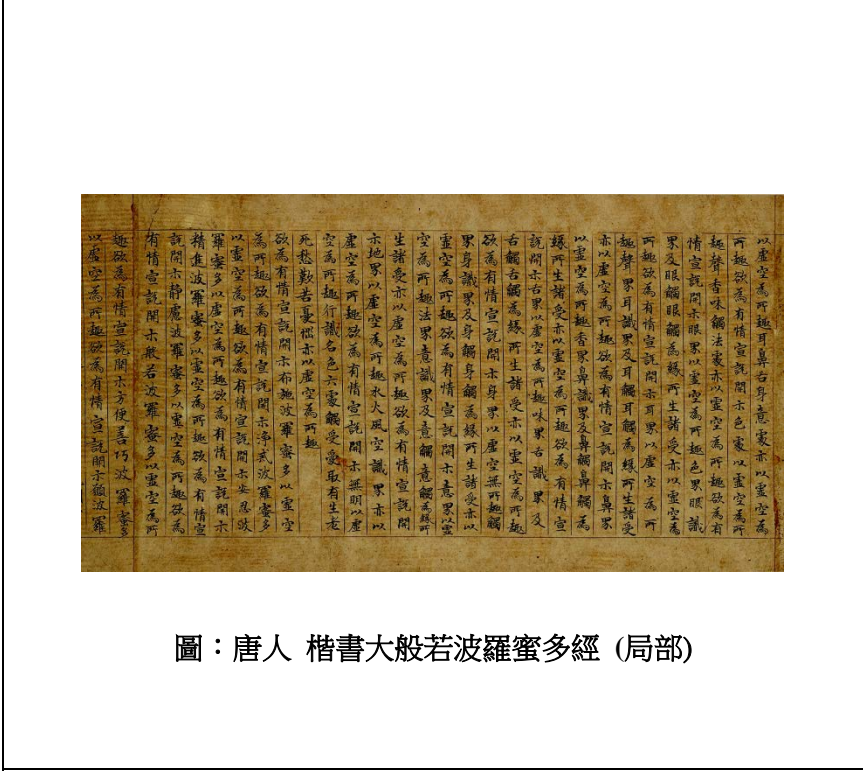 以虛空為所趣耳鼻舌身意處亦以虛空為
所趣欲為有情宣說開示色處以虛空為所
趣聲香味觸法處亦以虛空為所趣欲為有
情宣說開示眼界以虛空為所趣色界眼識
界及眼觸眼觸為緣所生諸受亦以虛空為
所趣欲為有情宣說開示耳界以虛空為所
趣聲界耳識界及耳觸耳觸為緣所生諸受
亦以虛空為所趣欲為有情宣說開示鼻界
以虛空為所趣香界鼻識界及鼻觸鼻觸為
緣所生諸受亦以虛空為所趣欲為有情宣
說開示舌界以虛空為所趣味界舌識界及
舌觸舌觸為緣所生諸受亦以虛空為所趣
欲為有情宣說開示身界以虛空無所趣觸
界身識界及身觸身觸為緣所生諸受亦以
虛空為所趣欲為有情宣說開示意界以虛
空為所趣法界意識界及意觸意觸為緣所
生諸受亦以虛空為所趣欲為有情宣說開
示地界以虛空為所趣水火風空識界亦以
虛空為所趣欲為有情宣說開示無明以虛
空為所趣行識名色六處觸受愛取有生老
死愁歎苦憂惱亦以虛空為所趣
欲為有情宣說開示布施波羅蜜多以虛空
為所趣欲為有情宣說開示淨戒波羅蜜多
以虛空為所趣欲為有情宣說開示安忍波
羅蜜多以虛空為所趣欲為有情宣說開示
精進波羅蜜多以虛空為所趣欲為有情宣
說開示靜慮波羅蜜多以虛空為所趣欲為
有情宣說開示般若波羅蜜多以虛空為所
趣欲為有情宣說開示方便善巧波羅蜜多
以虛空為所趣欲為有情宣說開示願波羅
圖：唐人 楷書大般若波羅蜜多經 (局部)